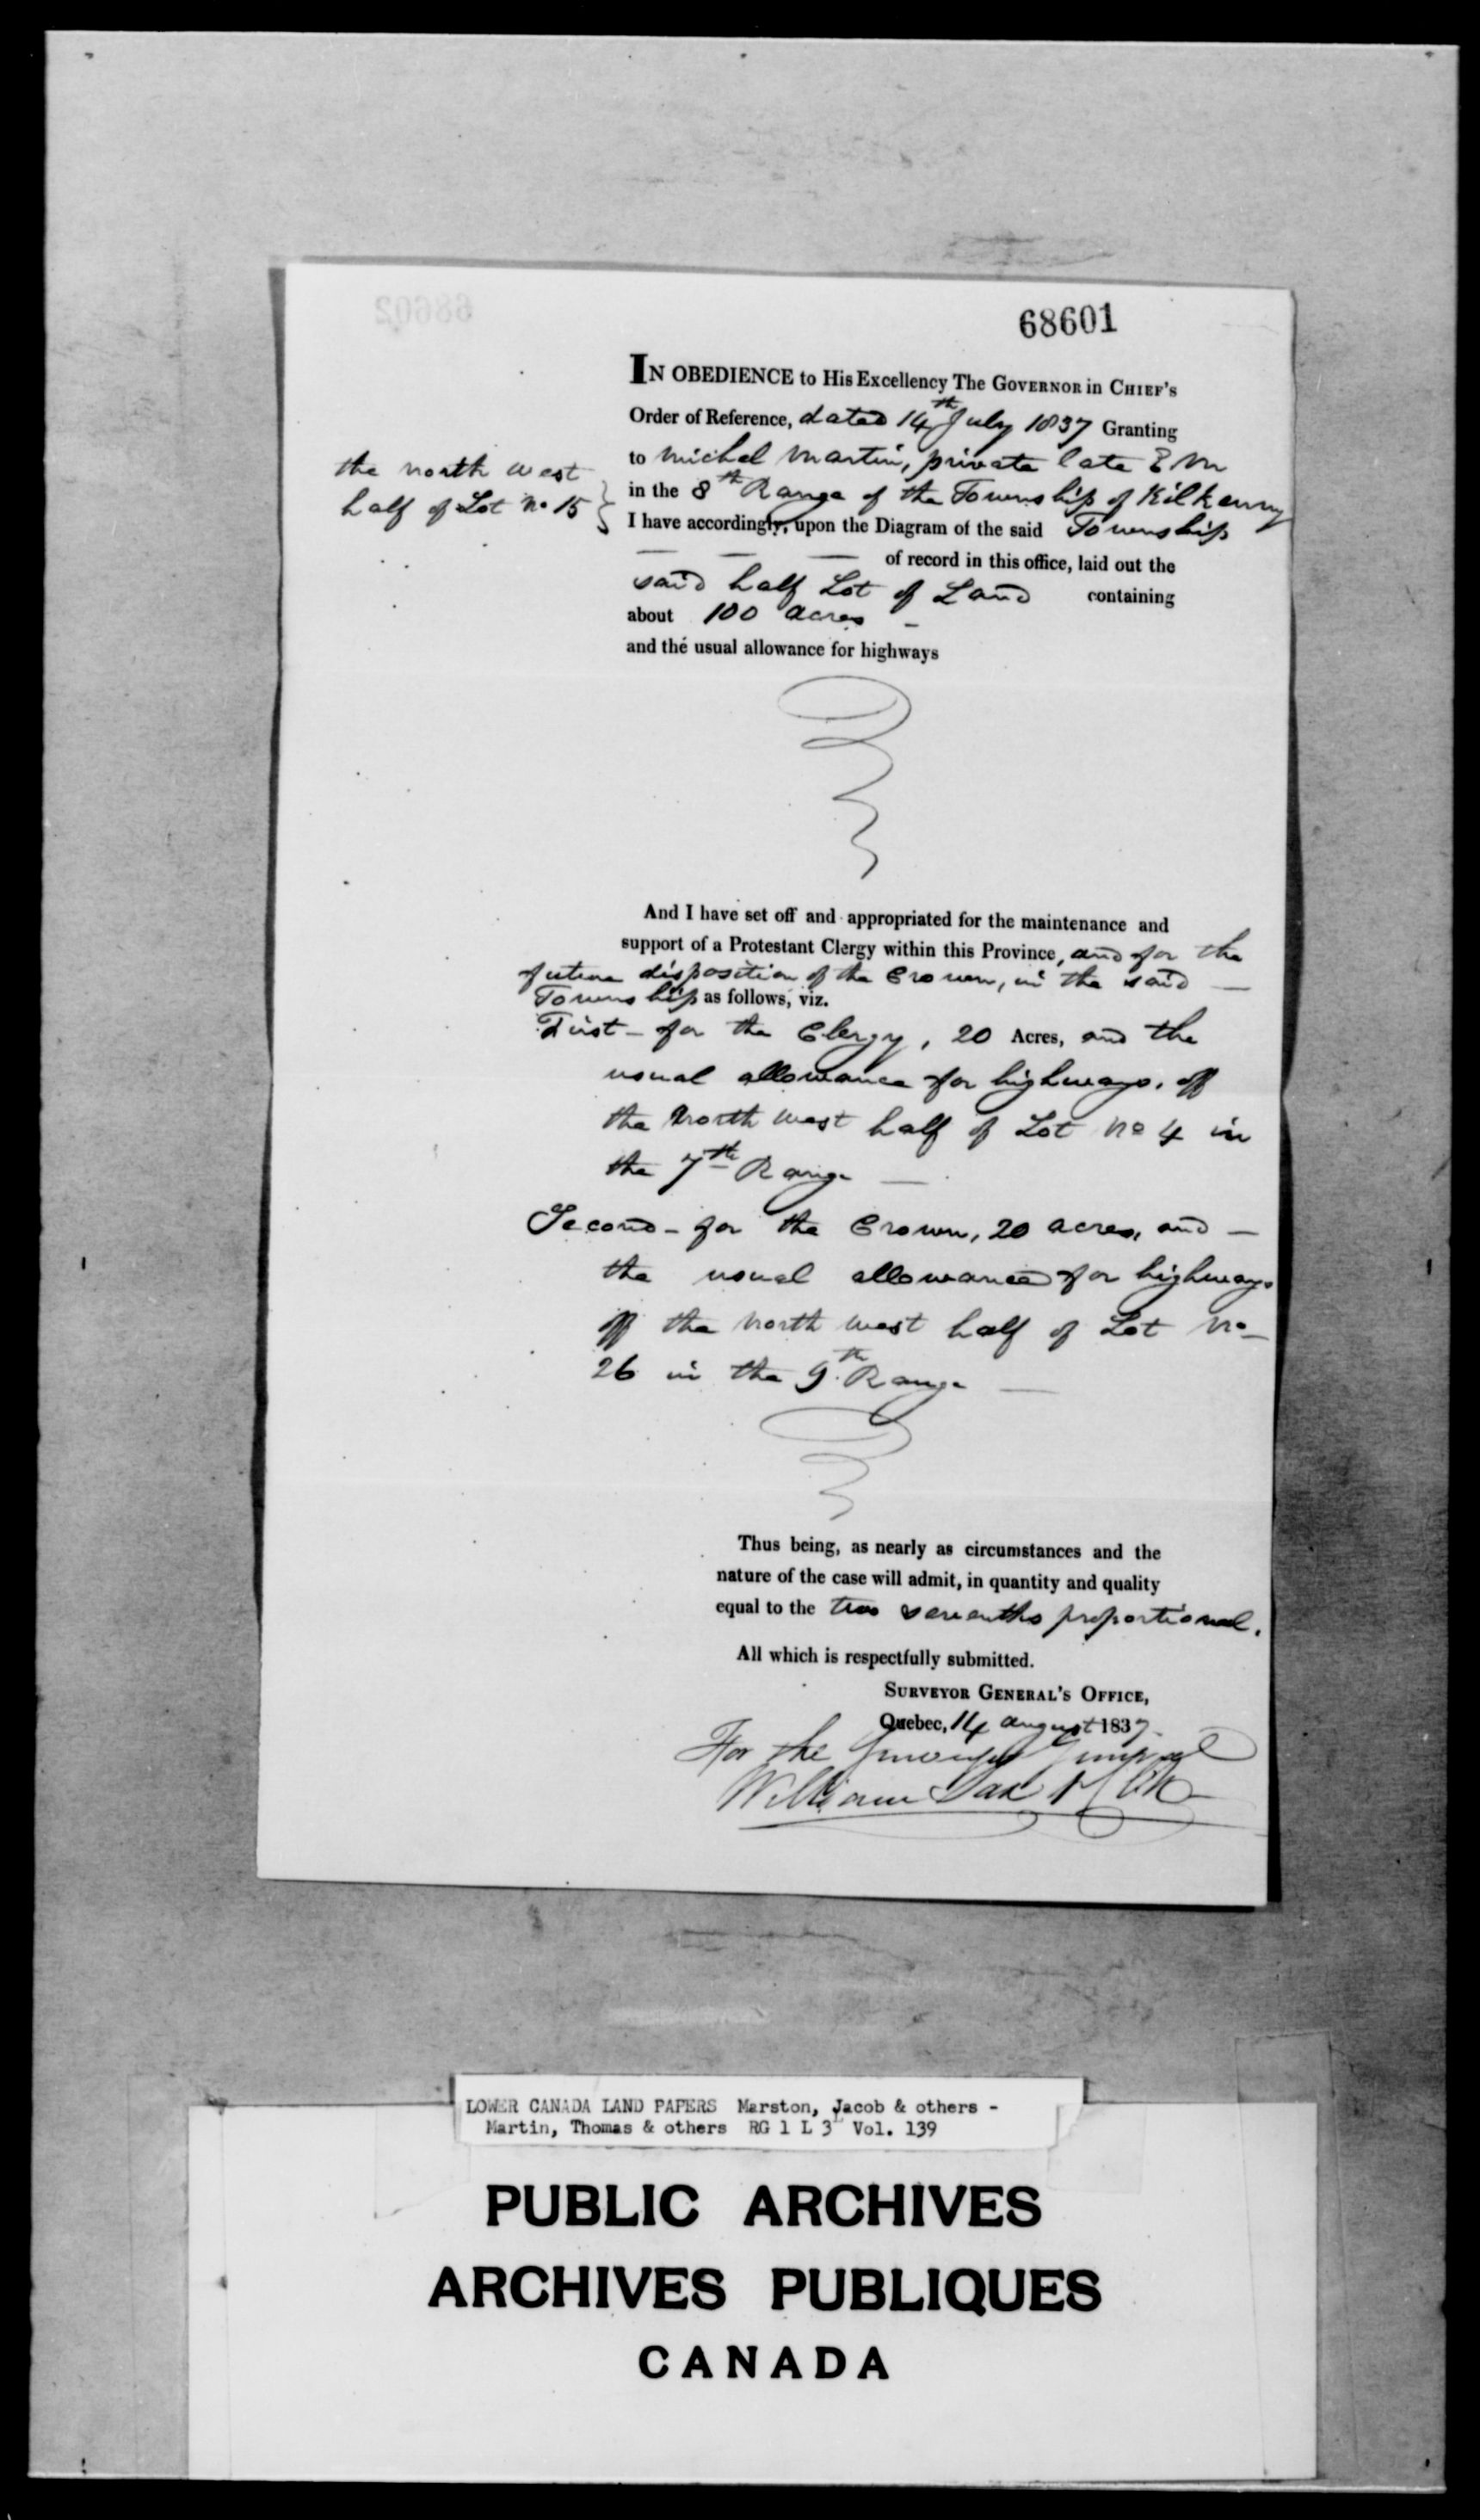 68602
68601
IN OBEDIENCE to His Excellency The GOVERNOR in CHIEF'S
Order of Reference, dated 14th July 1837 Granting
to Michel Martin, private late E M
the north west
half of Lot No 15
in the 8th Range of the Township of Kilkenny
I have accordingly, upon the Diagram of the said Township
— — — of record in this office, laid out the
said half Lot of Land containing
about 100 acres —
and the usual allowance for highways
And I have set off and appropriated for the maintenance and
support of a Protestant Clergy within this Province, and for the
future disposition of the Crown, in the said —
Township as follows, viz.
First - for the Clergy, 20 Acres, and the
usual allowance for highways, off
the North west half of Lot No 4 in
the 7th Range —
Second - for the Crown, 20 acres, and —
the usual allowance for highways
off the North west half of Lot No
26 in the 9th Range —
Thus being, as nearly as circumstances and the
nature of the case will admit, in quantity and quality
equal to the two sevenths proportional.
All which is respectfully submitted.
SURVEYOR GENERAL'S OFFICE,
Quebec, 14 August 1837.
For the Surveyor General
William Sax
LOWER CANADA LAND PAPERS Marston, Jacob & others -
Martin, Thomas & others RG 1 L 3L Vol. 139
PUBLIC ARCHIVES
ARCHIVES PUBLIQUES
CANADA